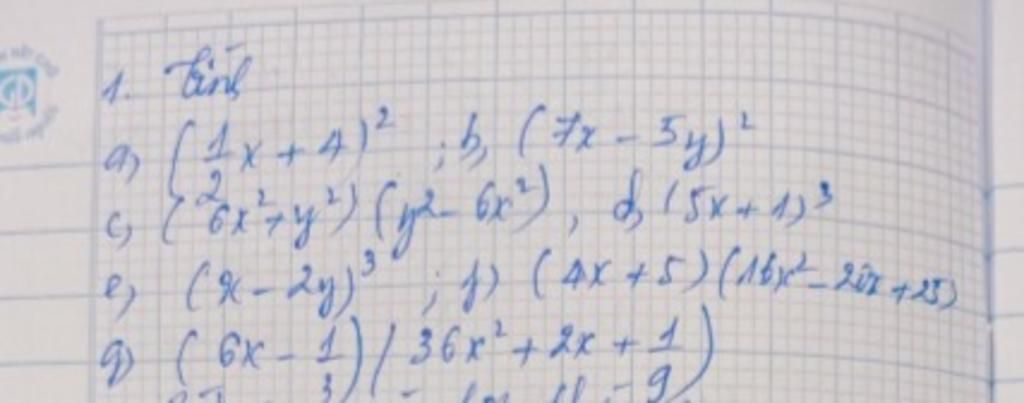 1. Tính
a) (1/2 x + 4)² ; b, (7x - 5y)²
c, (6x² + y²) (y² - 6x²), d, (5x + 1)³
e, (x - 2y)³ ; f) (4x + 5) (16x² - 20x + 25)
g) (6x - 1/3) (36x² + 2x + 1/9)